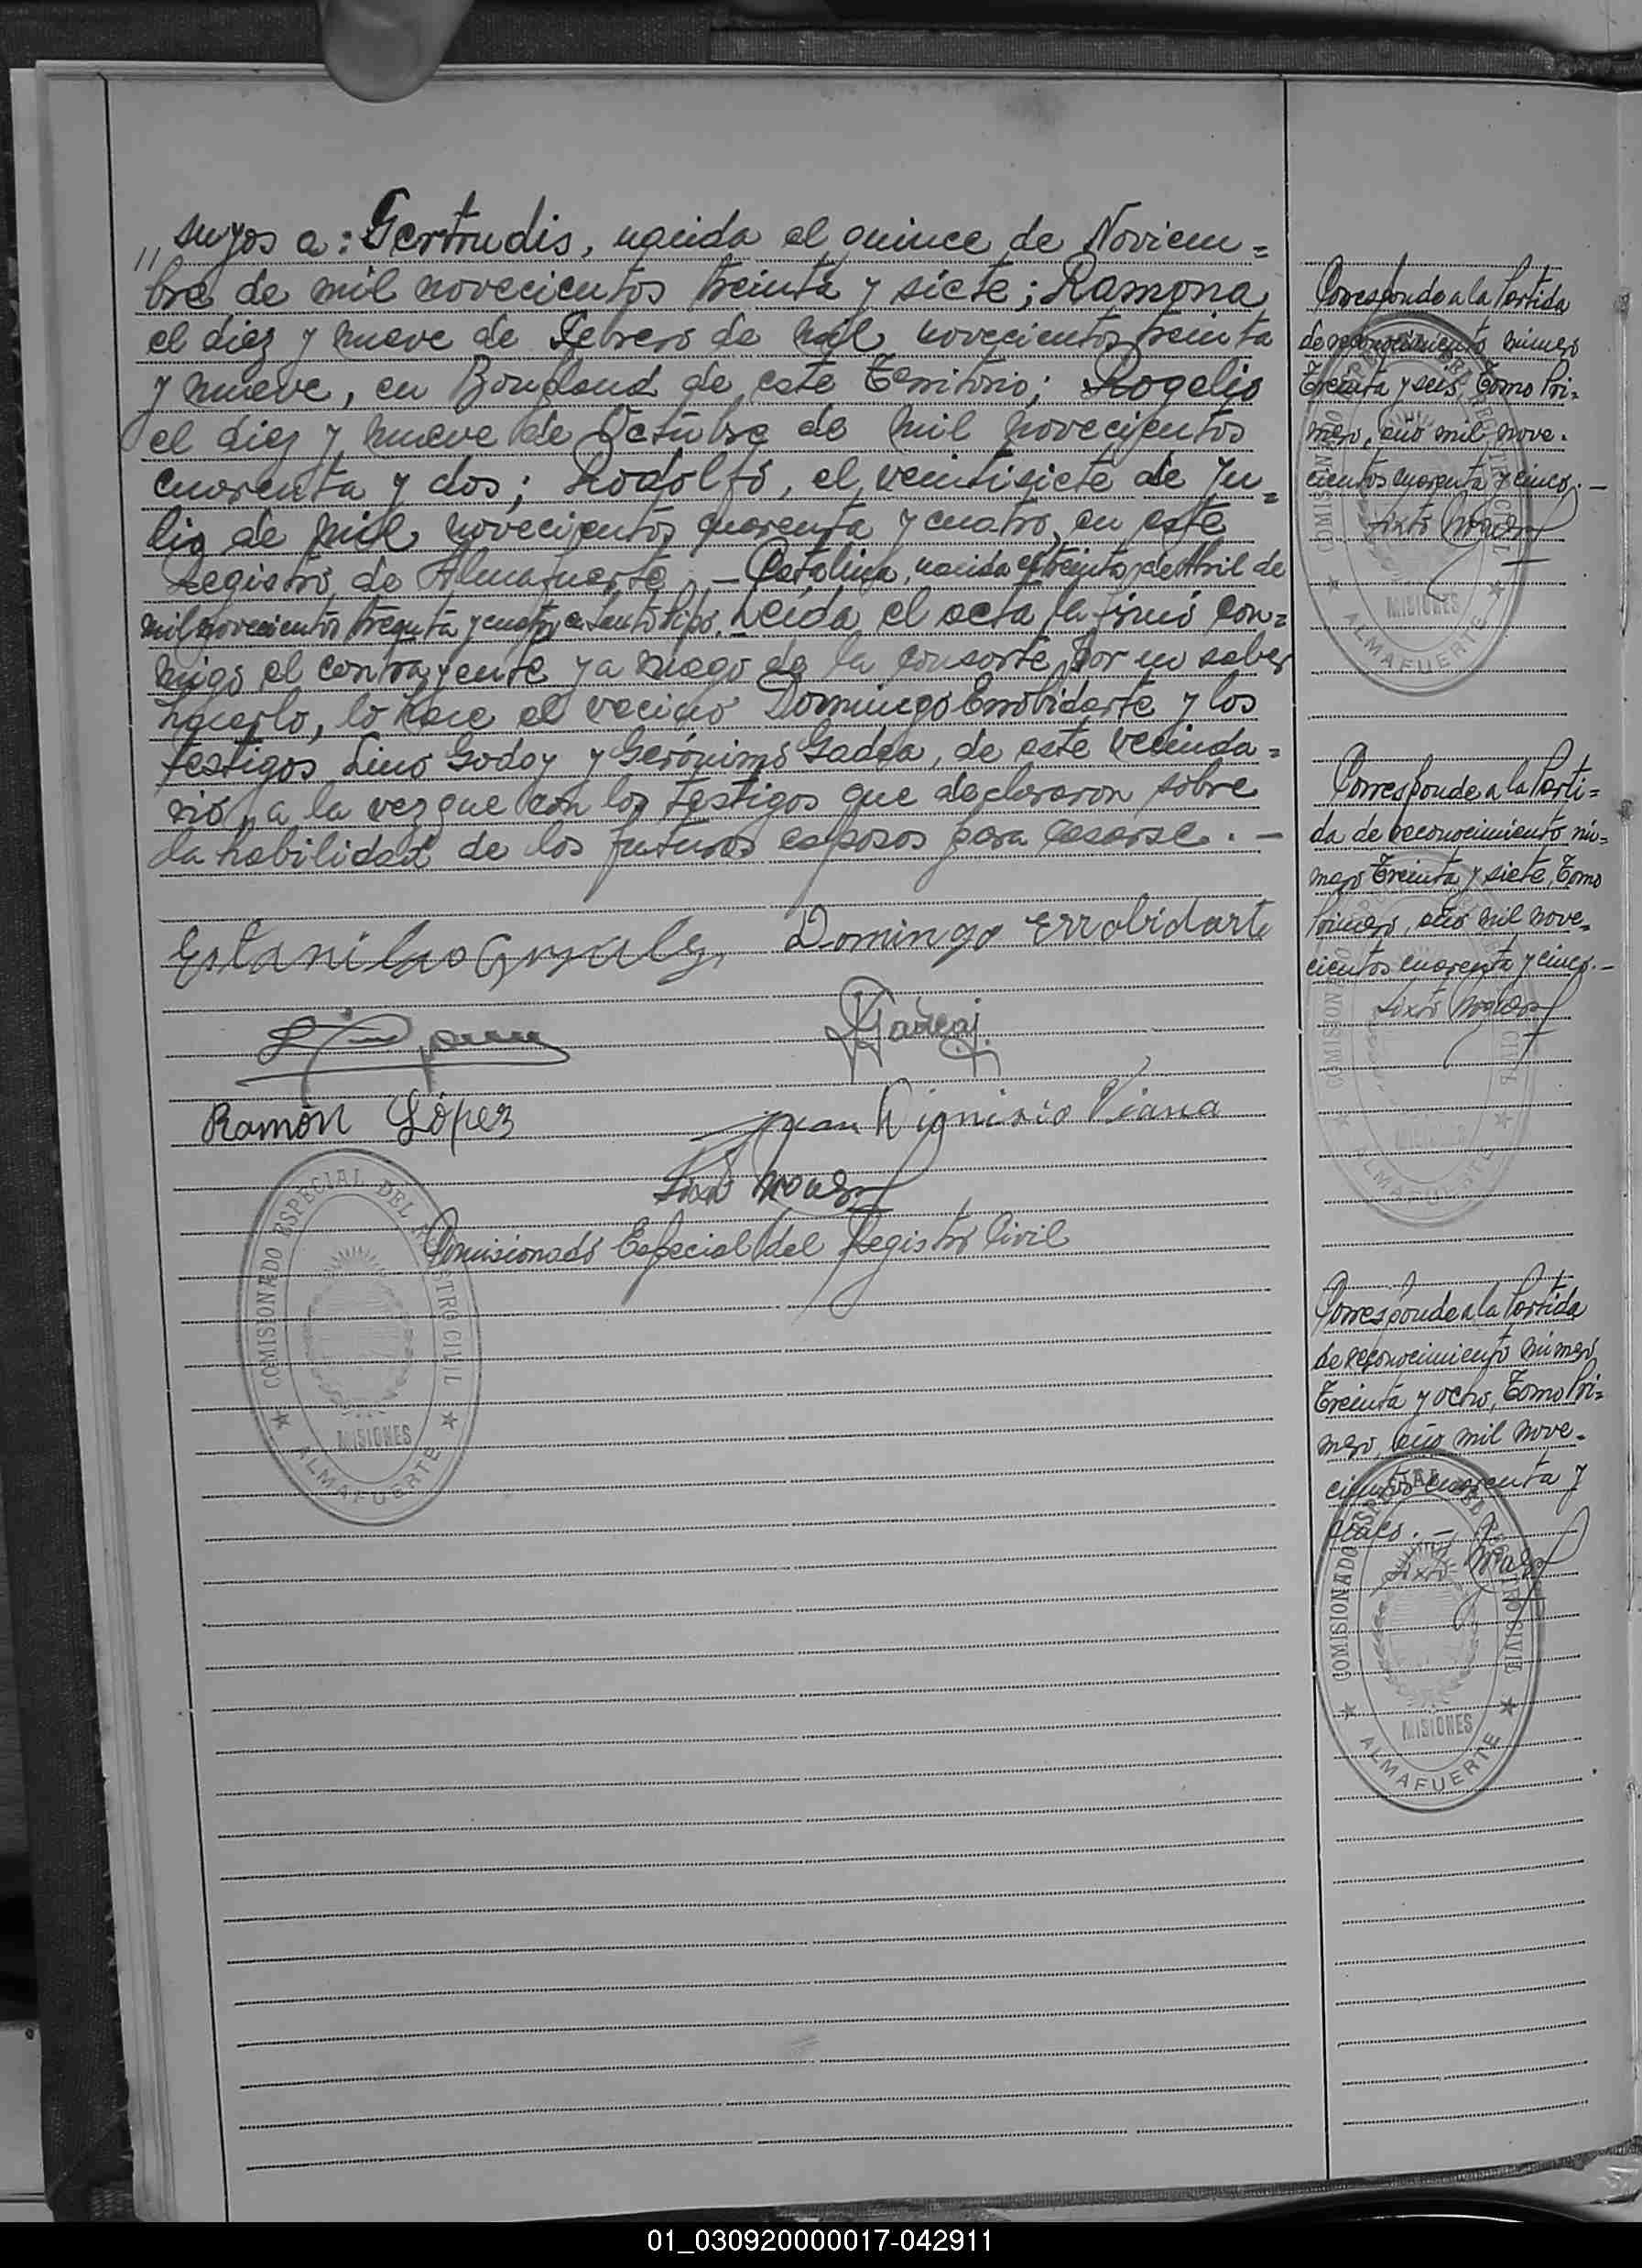 " suyos a: Gertrudis, nacida el quince de Noviem=
bre de mil novecientos treinta y siete; Ramona
el diez y nueve de Febrero de mil novecientos treinta
y nueve, en Bonpland de este Territorio; Rogelio
el diez y nueve de Octubre de mil novecientos
cuarenta y dos; Rodolfo, el veintisiete de Ju=
lio de mil novecientos cuarenta y cuatro, en este
Registro de Almafuerte. — Catalina, nacida el treinta de Abril de
mil novecientos treinta y cuatro, en Santo Pipó. Leída el acta la firmó con=
migo el contrayente y a ruego de la consorte por no saber
hacerlo, lo hace el vecino Domingo Errobidarte y los
testigos Lino Godoy y Gerónimo Gadea, de este vecinda=
rio, a la vez que con los testigos que declararon sobre
la habilidad de los futuros esposos para casarse. —
Domingo Errobidarte
Ramón López
Juan Dionisio Viana
Comisionado Especial del Registro Civil
COMISIONADO ESPECIAL DEL REGISTRO CIVIL
MISIONES
★ ALMAFUERTE ★
Corresponde a la Partida
de reconocimiento número
Treinta y seis, Tomo Pri=
mero, año mil nove-
cientos cuarenta y cinco. —
Sixto
COMISIONADO
MISIONES
★ ALMAFUERTE ★
Corresponde a la Parti=
da de reconocimiento nú=
mero Treinta y siete, Tomo
Primero, año mil nove=
cientos cuarenta y cinco. —
Sixto
ALMAFUERTE
Corresponde a la Partida
de reconocimiento número
Treinta y ocho, Tomo Pri=
mero, año mil nove-
cientos cuarenta y
cinco. —
Sixto
COMISIONADO
MISIONES
★ ALMAFUERTE ★
01_030920000017-042911